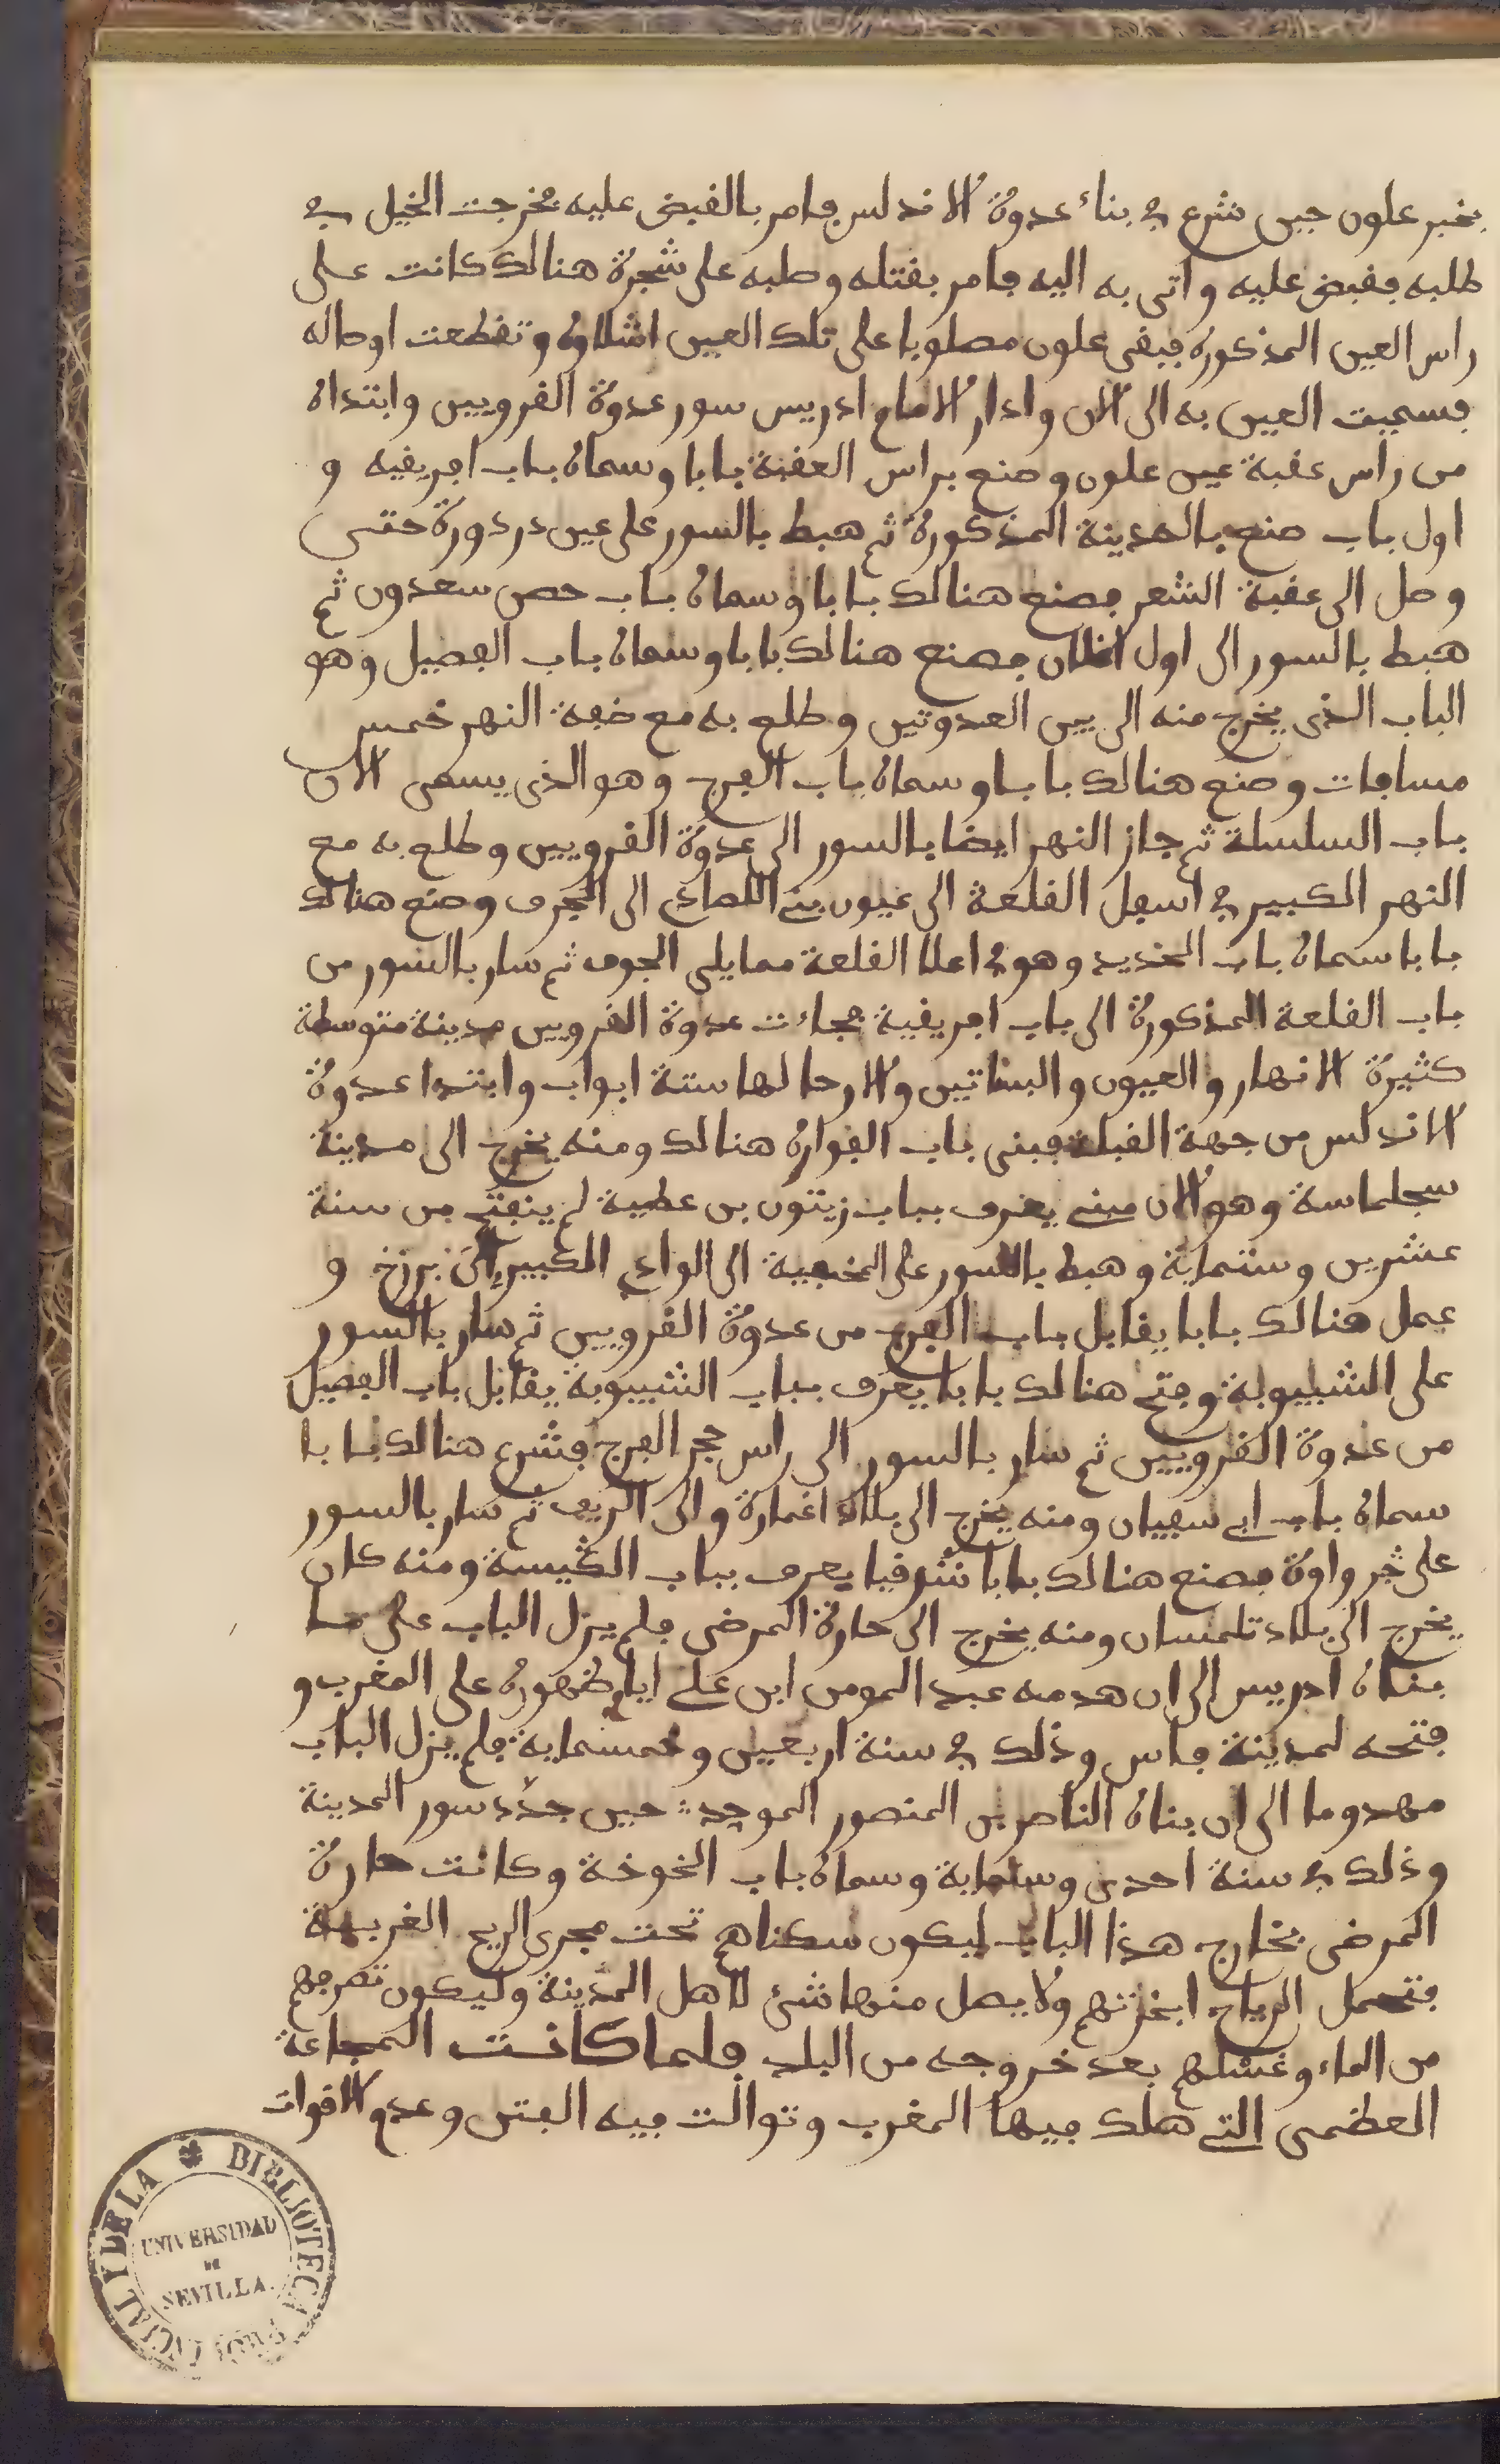 بخبر علون حين شرع في بناء عدوة الاندلس فامر بالقبض عليه فخرجت الخيل في
طلبه فقبض عليه واتى به اليه فامر بقتله وصلبه على شجرة هنالك كانت على
راس العين المذكورة فبقى علون مصلوبا على تلك العين اشلاوه وتقطعت اوصاله
فسميت العين به الى الان وادار الامام ادريس سور عدوة القرويين وابتداه
من راس عقبة عين علون وصنع براس العقبة بابا وسماه باب افريقيه و
اول باب صنع بالمدينة المذكورة ثم هبط بالسور على عين دردورة حتى
وصل الى عقبة الشعر فصنع هنالك بابا وسماه باب حصن سعدون ثم
هبط بالسور الى اول اغلان فصنع هنالك بابا وسماه باب الفصيل وهو
الباب الذى يخرج منه الى بين العدوتين وطلع به مع ضفة النهر خمس
مسافات وصنع هنالك بابا وسماه باب الفرج وهو الذى يسمى الان
باب السلسلة ثم جاز النهر ايضا بالسور الى عدوة القرويين وطلع به مع
النهر الكبير في اسفل القلعة الى عيون بني اللصادي الى الجرف وصنع هنالك
بابا سماه باب الحديد وهو في اعلا القلعة مما يلى الجوف ثم سار بالسور من
باب القلعة المذكورة الى باب افريقية فجاءت عدوة القرويين مدينة متوسطة
كثيرة الانهار والعيون والبساتين والارحا لها ستة ابواب وابتدا عدوة
الاندلس من جهة القبلة فبنى باب الفوارة هنالك ومنه يخرج الى مدينة
سجلماسة وهو الان مبني يعرف بباب زيتون بن عطية لم ينفتح من سنة
عشرين وستماية وهبط بالسور على المخفية الى الوادي الكبير الى برزخ و
عمل هنالك بابا يقابل باب الفرج من عدوة القرويين ثم سار بالسور
على الشيبوبة وفتح هنالك بابا يعرف بباب الشيبوبة يقابل باب الفصيل
من عدوة القرويين ثم سار بالسور الى راس حجر الفرج فشرع هنالك بابا
سماه باب ابي سفيان ومنه يخرج الى بلاد اغمارة والى الريف ثم سار بالسور
على جرواوة فصنع هنالك بابا شرقيا يعرف بباب الكنيسة ومنه كان
يخرج الى بلاد تلمسان ومنه يخرج الى حارة المرضى فلم يزل الباب على ما
بناه ادريس الى ان هدمه عبد المومن ابن على ايام ظهوره على المغرب و
فتحه لمدينة فاس وذلك في سنة اربعين وخمسماية فلم يزل الباب
مهدوما الى ان بناه الناصر بن المنصور الموحد حين جدّد سور المدينة
وذلك في سنة احدى وستماية وسماه باب الخوخة وكانت حارة
المرضى بخارج هذا الباب ليكون سكناهم تحت مجرى الريح الغربية
فتحمل الرياح ابخرتهم ولا يصل منها شىء لاهل المدينة وليكون تصرفهم
من الماء وغسلهم بعد خروجه من البلد فلما كانت المجاعة
العظمى التي هلك فيها المغرب وتوالت فيه الفتن وعدم الاقوات
BIBLIOTECA
UNIVERSIDAD
DE
SEVILLA